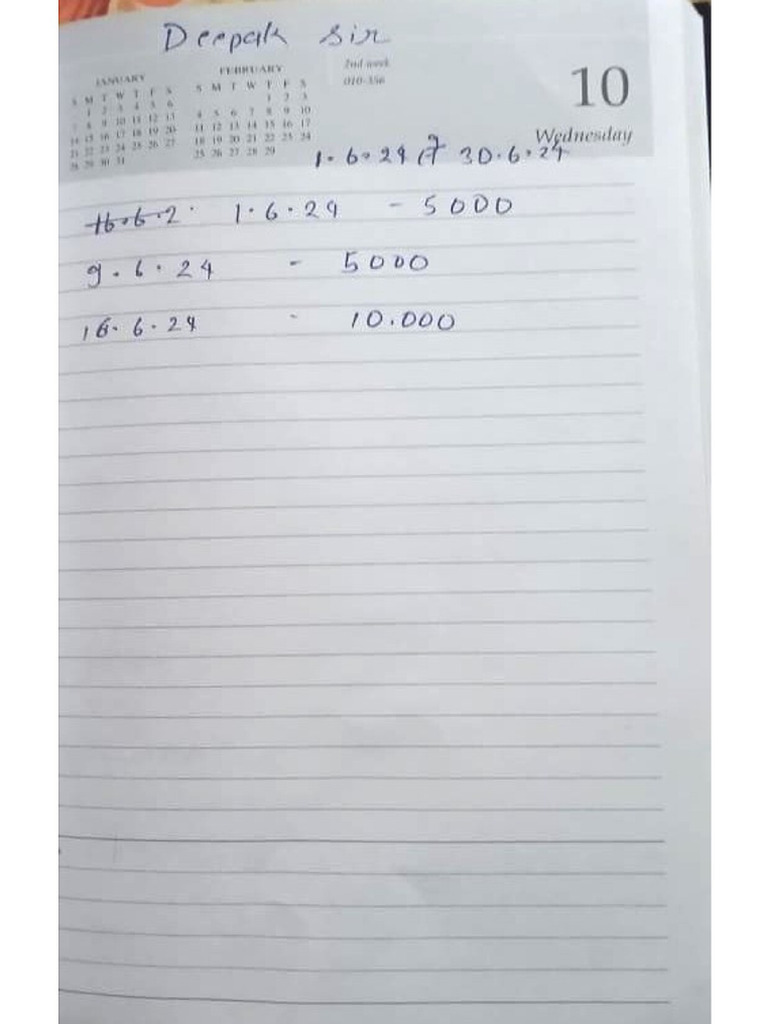 Deepak sir
JANUARY FEBRUARY 2nd week
S M T W T F S S M T W T F S 010-356
1 2 3 4 5 6 1 2 3 10
7 8 9 10 11 12 13 4 5 6 7 8 9 10
14 15 16 17 18 19 20 11 12 13 14 15 16 17
21 22 23 24 25 26 27 18 19 20 21 22 23 24 Wednesday
28 29 30 31 25 26 27 28 29
1.6.24 30.6.24
16.6.2 1.6.24 - 5000
9.6.24 - 5000
16.6.24 - 10.000